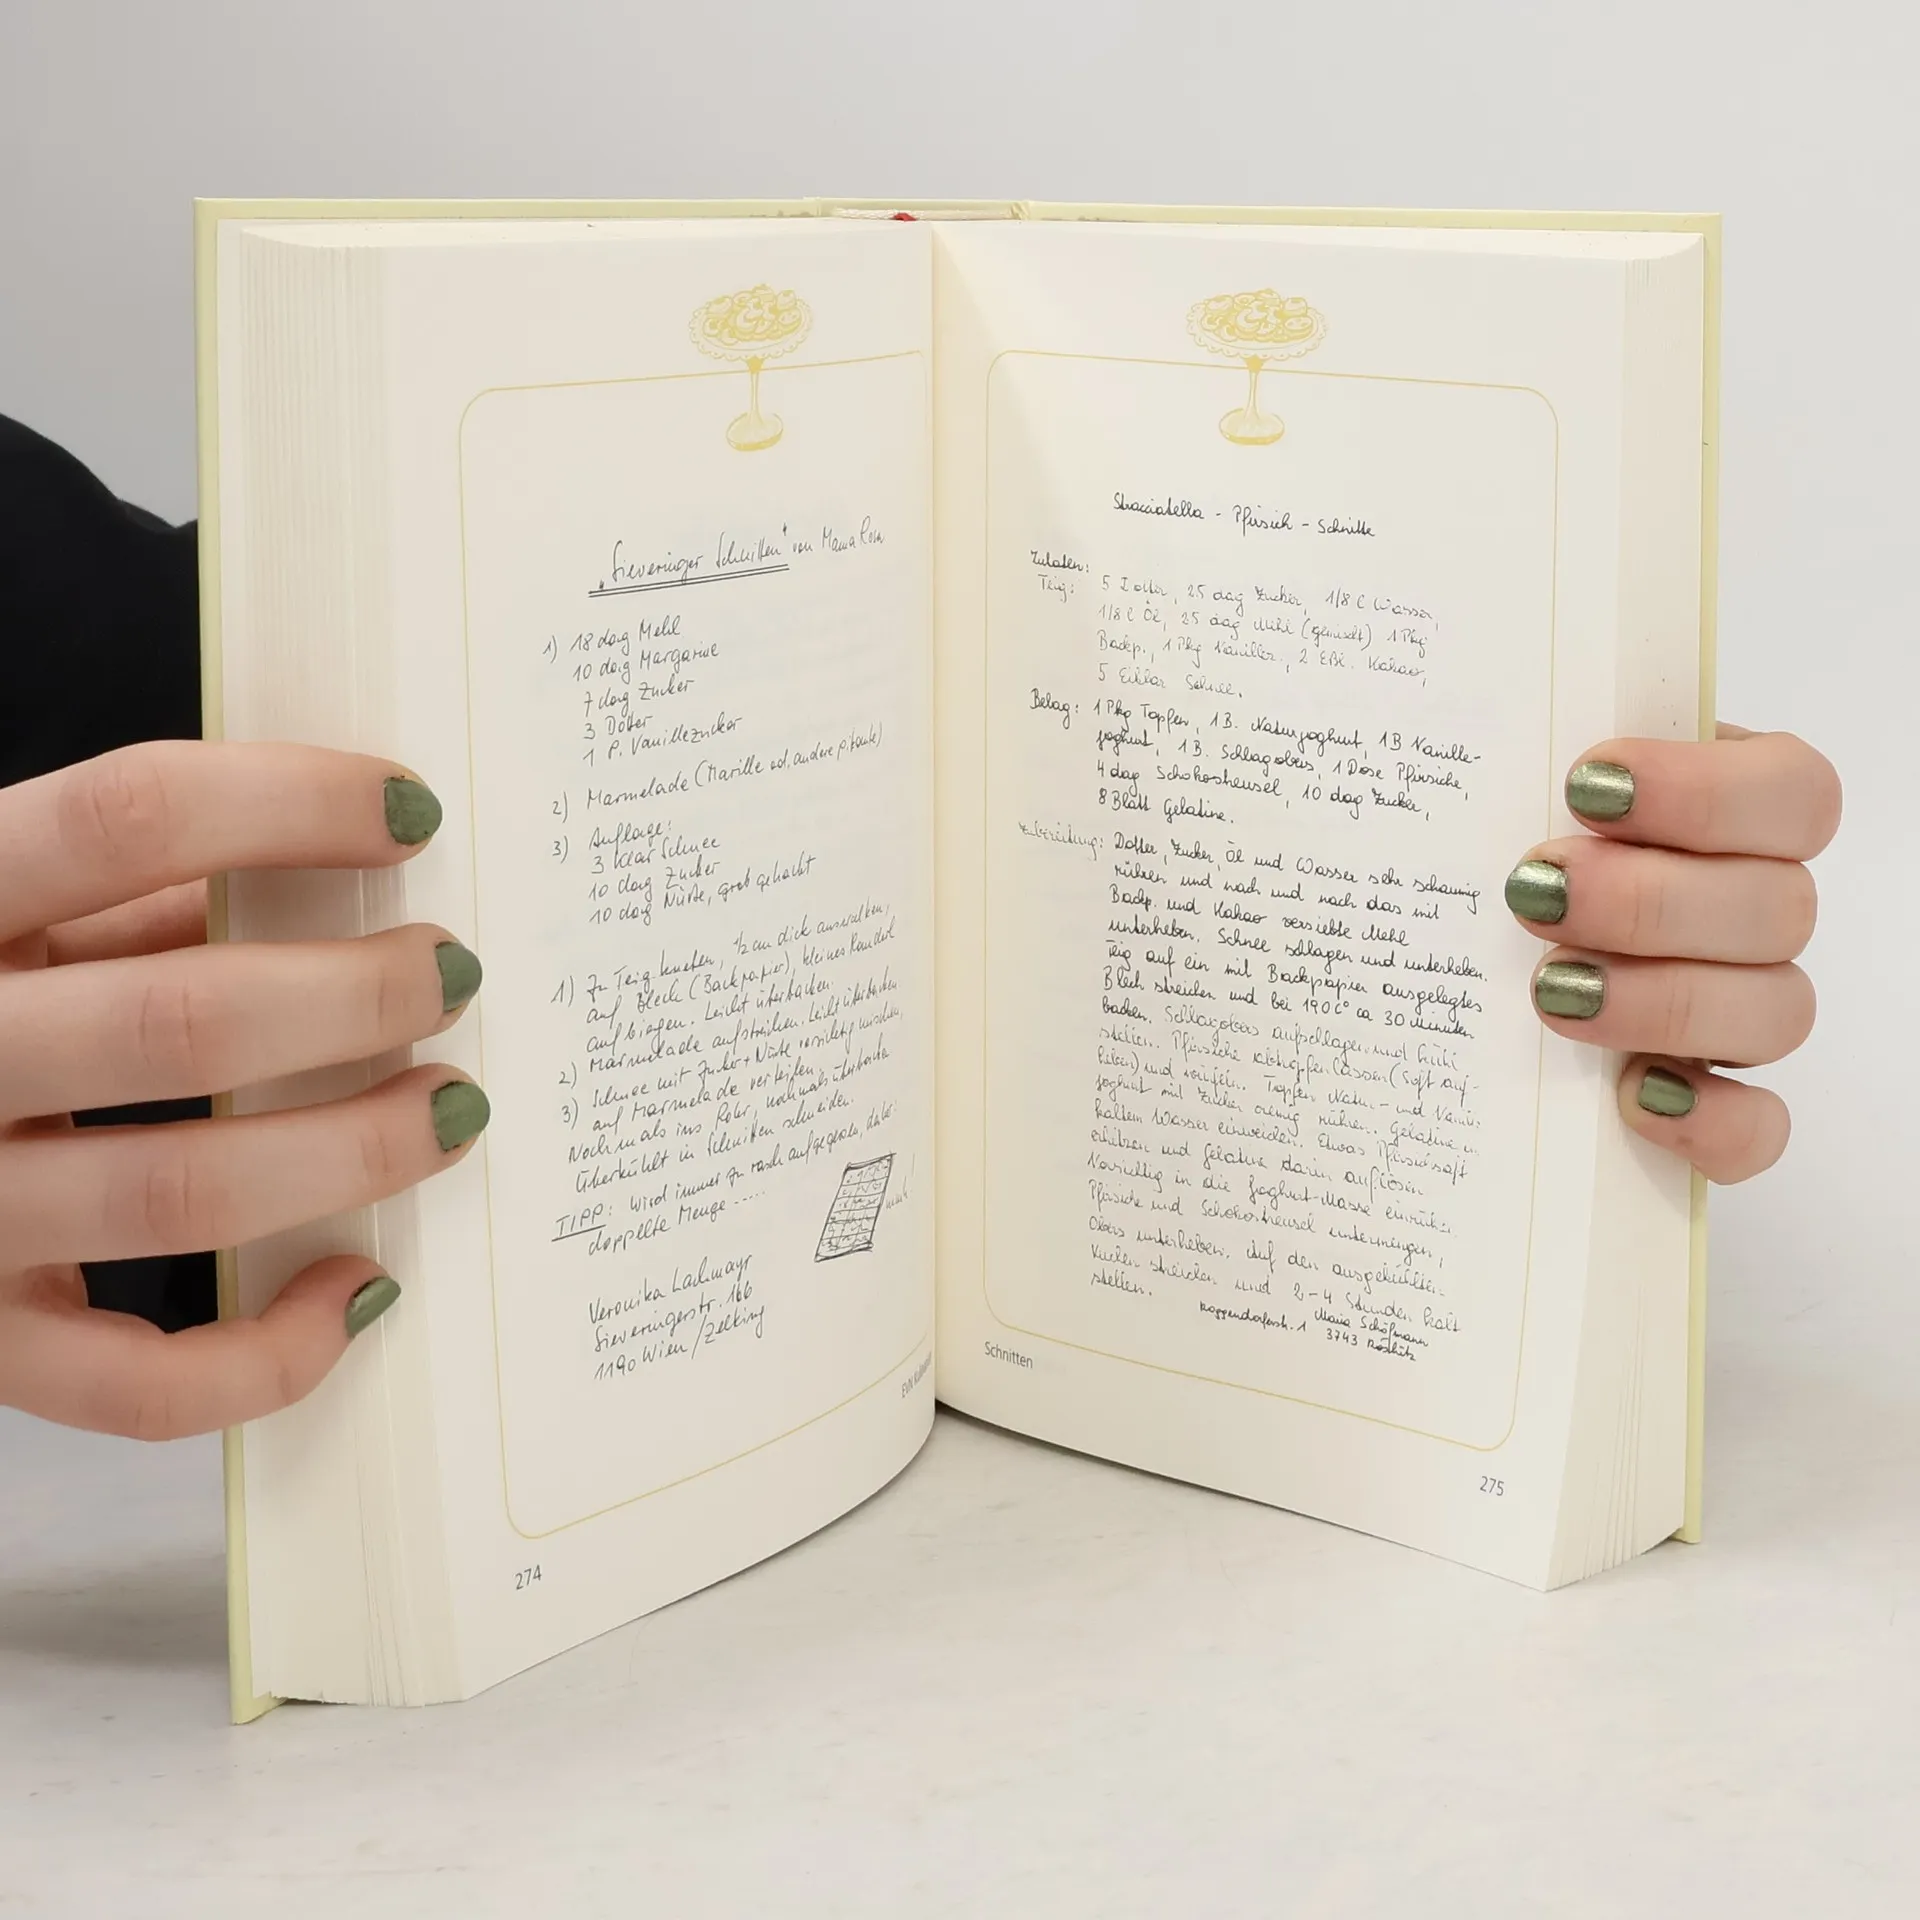 „Sieveringer Schnitten" von Mama Rosa
1) 18 dag Mehl
10 dag Margarine
7 dag Zucker
3 Dotter
1 P. Vanillezucker
2) Marmelade (Marille od. andere pikante)
3) Auflage:
3 Klar Schnee
10 dag Zucker
10 dag Nüsse, grob gehackt
1) Zu Teig kneten, ½ cm dick auswalken,
auf Blech (Backpapier), kleines Randerl
aufbiegen. Leicht überbacken.
2) Marmelade aufstreichen. Leicht überbacken
3) Schnee mit Zucker + Nüsse vorsichtig mischen,
auf Marmelade verteilen.
Nochmals ins Rohr, nochmals überbacken
Überkühlt in Schnitten schneiden.
TIPP: Wird immer zu rasch aufgegessen, daher:
doppelte Menge -----
Veronika Lachmayr
Sieveringerstr. 166
1190 Wien / Zelking
EVN
274
Stracciatella - Pfirsich - Schnitte
Zutaten:
Teig: 5 Dotter, 25 dag Zucker, 1/8 l Wasser,
1/8 l Öl, 25 dag Mehl (gemischt) 1 Pkg
Backp., 1 Pkg Vanillez., 2 Eßl. Kakao,
5 Eiklar Schnee.
Belag: 1 Pkg Topfen, 1 B. Naturjoghurt, 1 B Vanille-
joghurt, 1 B. Schlagobers, 1 Dose Pfirsiche,
4 dag Schokostreusel, 10 dag Zucker,
8 Blatt Gelatine.
Zubereitung: Dotter, Zucker, Öl und Wasser sehr schaumig
rühren und nach und nach das mit
Backp. und Kakao versiebte Mehl
unterheben. Schnee schlagen und unterheben.
Teig auf ein mit Backpapier ausgelegtes
Blech streichen und bei 190 C° ca 30 Minuten
backen. Schlagobers aufschlagen und kühl
stellen. Pfirsiche abtropfen lassen (Saft auf-
heben) und würfeln. Topfen Natur- und Vanille-
joghurt mit Zucker cremig rühren. Gelatine in
kaltem Wasser einweichen. Etwas Pfirsichsaft
erhitzen und Gelatine darin auflösen
Vorsichtig in die Joghurt-Masse einrühren
Pfirsiche und Schokostreusel untermengen,
Obers unterheben. Auf den ausgekühlten
Kuchen streichen und 2-4 Stunden kalt
stellen.
Maria Schöfmann
Roggendorferstr. 1 3743 Röschitz
Schnitten
275